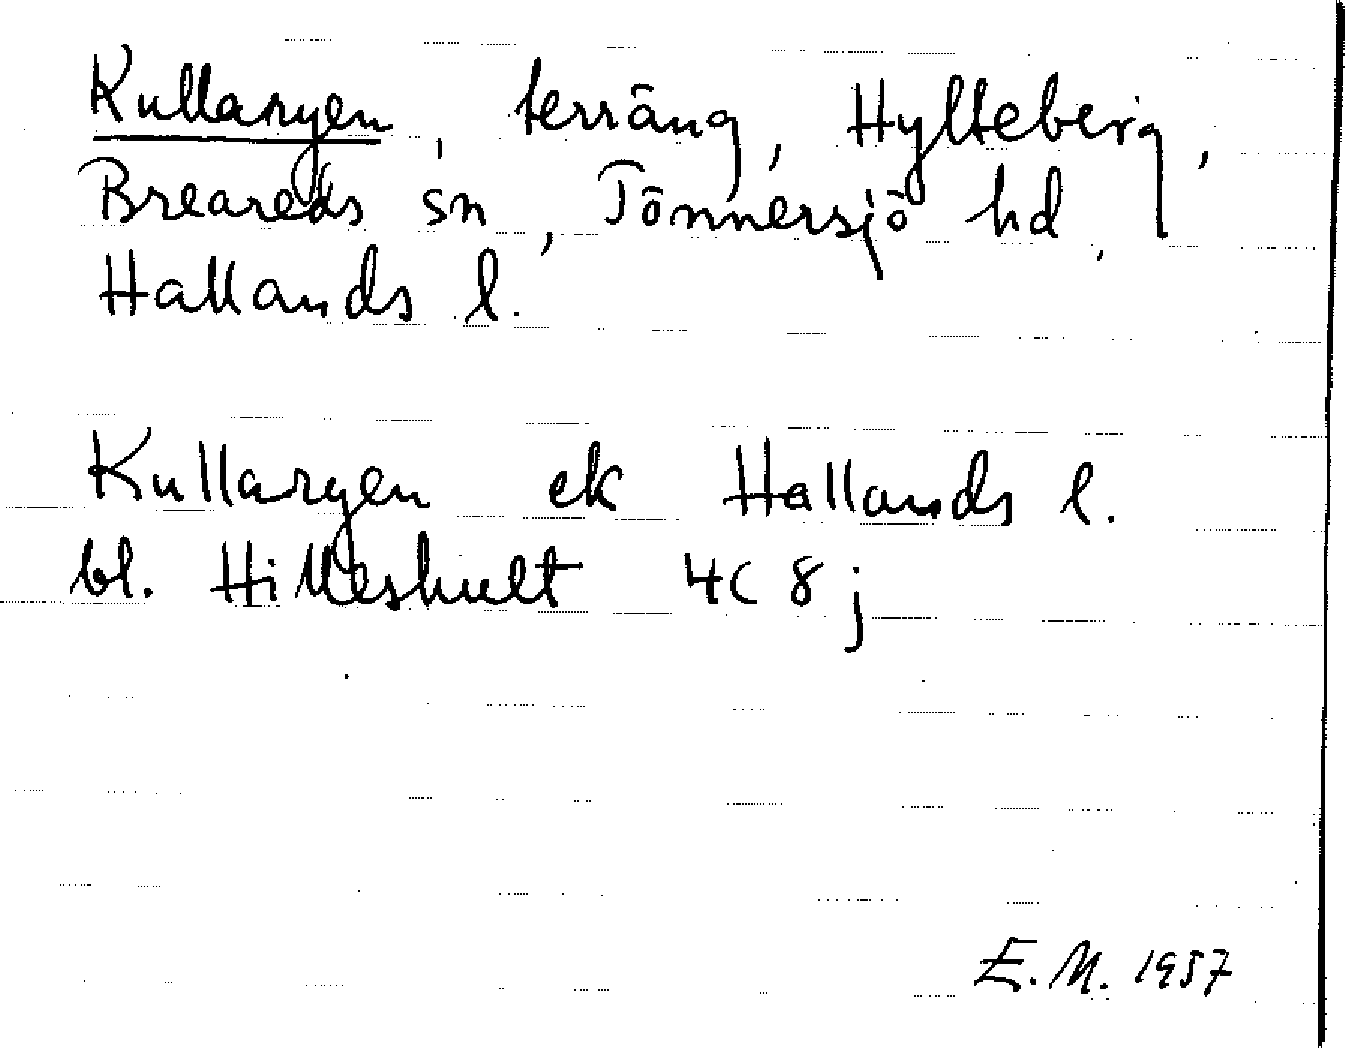 Kullaryen, terräng, Hylteberg,
Breareds sn, Tönnersjö hd,
Hallands l.
Kullaryen ek Hallands l.
bl. Hilleshult 4C 8j
E.M. 1957